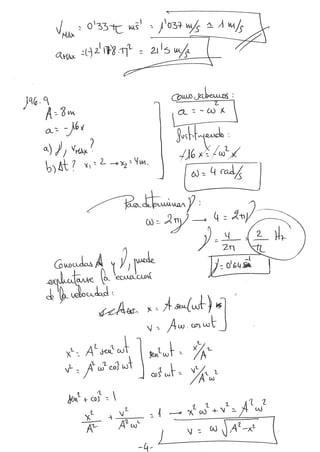 Vmáx = 0'33π ms⁻¹ = 1'037 m/s ≃ 1 m/s
amáx = (-)2'178·π² = 21'5 m/s²
196.9
A = 8m
a = -16x
a) ν, vmáx?
b) Δt? x₁ = 2 → x₂ = 4m.
Como sabemos:
a = -ω²x
Sustituyendo:
-16x = -ω²x
ω = 4 rad/s
Para determinar ν:
ω = 2πν → 4 = 2πν
ν = 4/2π = 2/π Hz
ν = 0'64 s⁻¹
Conocidas A y ν, puede
explicitarse la ecuación
de la velocidad:
x = A sen(ωt)
v = Aω·cos ωt
x² = A² sen² ωt
v² = A² ω² cos² ωt
sen² ωt = x²/A²
cos² ωt = v²/A²ω²
sen² + cos² = 1
x²/A² + v²/A²ω² = 1 → x²ω² + v² = A²ω²
v = ω √(A² - x²)
-4-